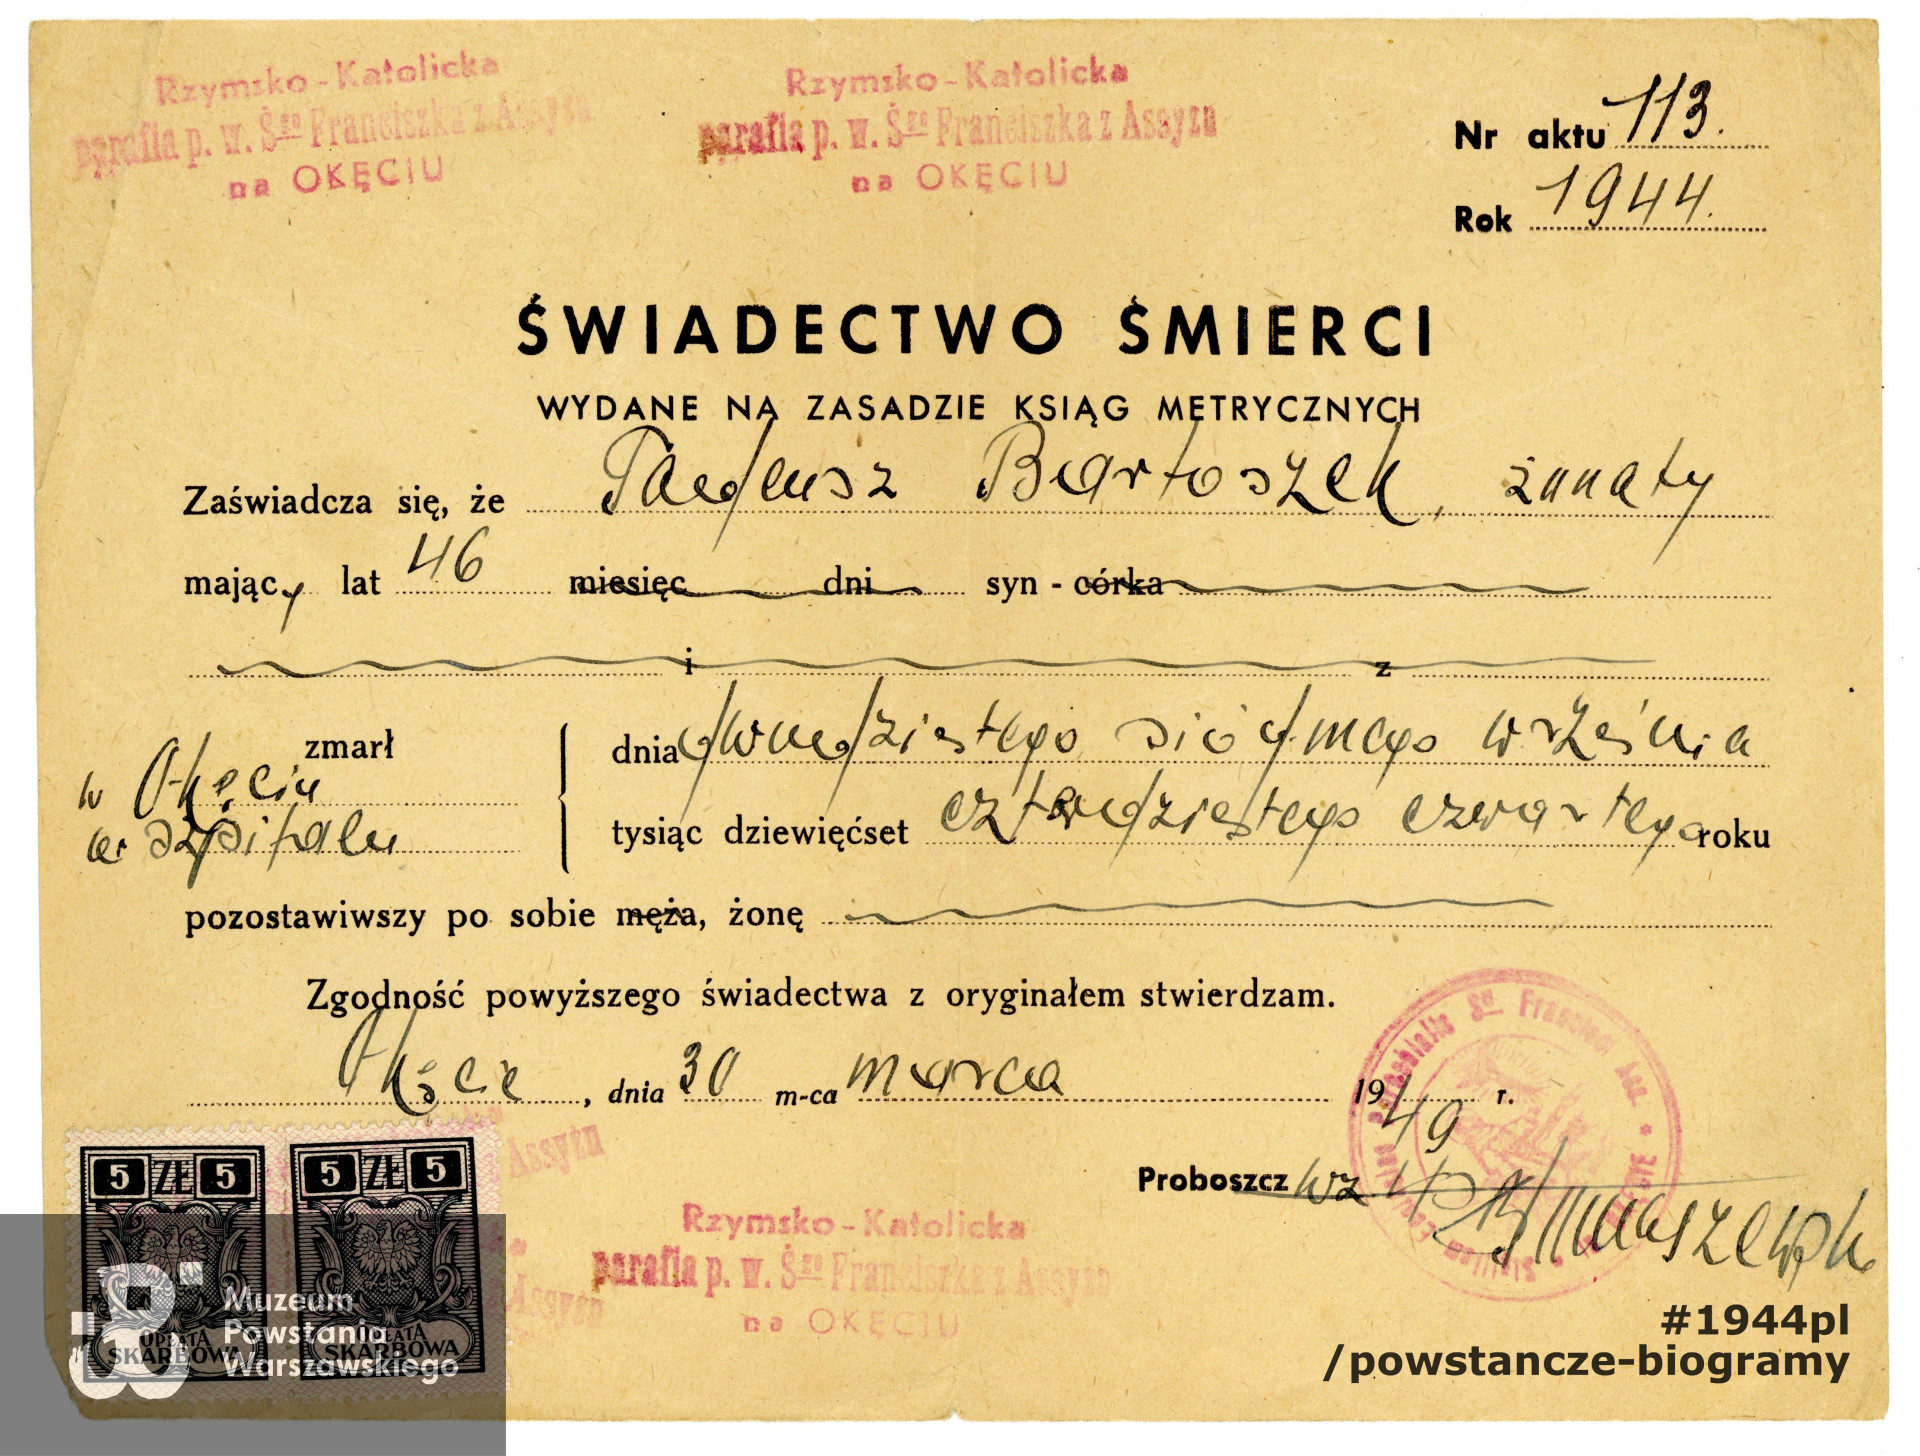 Rzymsko-Katolicka
parafia p. w. Śgo Franciszka z Assyżu
na OKĘCIU
Rzymsko-Katolicka
parafia p. w. Śgo Franciszka z Assyżu
na OKĘCIU
Nr aktu 113.
Rok 1944.
ŚWIADECTWO ŚMIERCI
WYDANE NA ZASADZIE KSIĄG METRYCZNYCH
Zaświadcza się, że Tadeusz Bartoszek, żonaty
mający lat 46 miesięc dni syn - córka
i z
zmarł dnia dwudziestego siódmego września
w Okęciu
w szpitalu
tysiąc dziewięćset czterdziestego czwartego roku
pozostawiwszy po sobie męża, żonę
Zgodność powyższego świadectwa z oryginałem stwierdzam.
Okęcie, dnia 30 m-ca marca 1949 r.
Proboszcz wz
5 ZŁ 5
5 ZŁ 5
OPŁATA
SKARBOWA
OPŁATA
SKARBOWA
Assyżu
Assyżu
Rzymsko-Katolicka
parafia p. w. Śgo Franciszka z Assyżu
na OKĘCIU
Muzeum
Powstania
Warszawskiego
#1944pl
/powstancze-biogramy